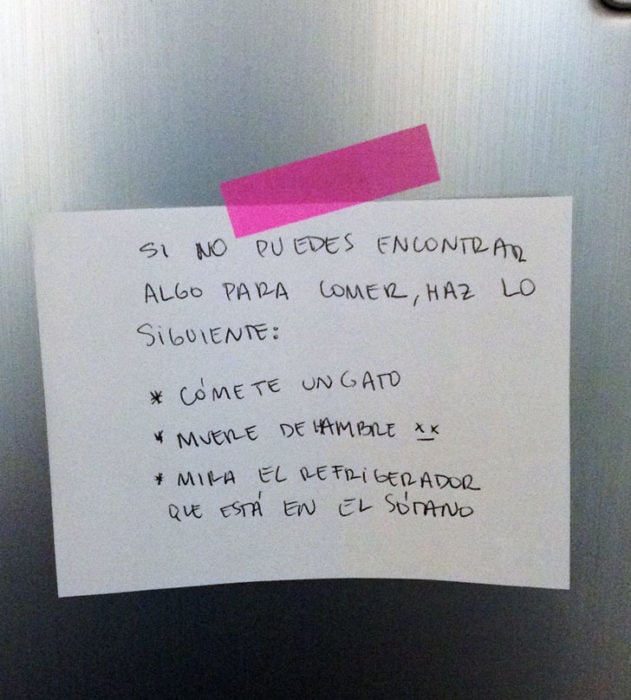 SI NO PUEDES ENCONTRAR
ALGO PARA COMER, HAZ LO
SIGUIENTE:
* CÓMETE UN GATO
* MUERE DE HAMBRE x_x
* MIRA EL REFRIGERADOR
QUE ESTÁ EN EL SÓTANO